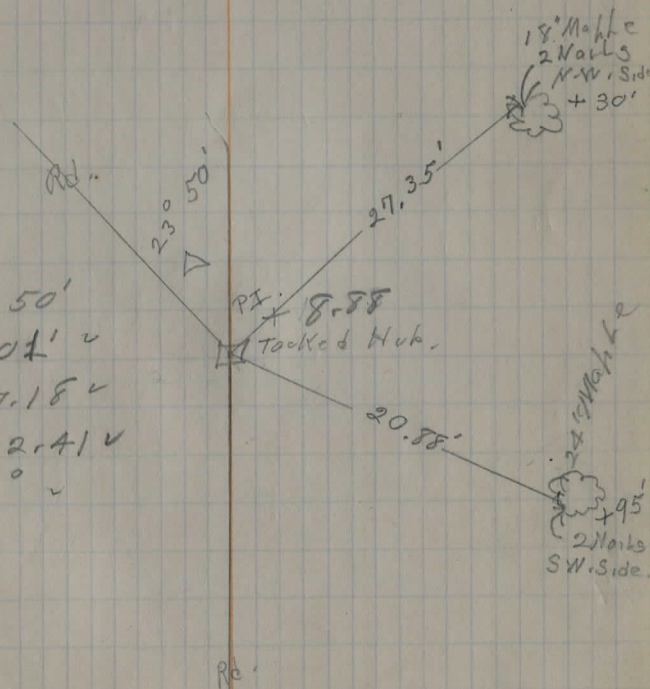 18" Maple
2 Nails
N.W. Side
+ 30'
Rd.
23° 50'
27.35'
50'
P.I.
+ 8.88
01'
Tacked Hub.
.18
2.41
20.88'
24" Maple
+95'
2 Nails
S.W. Side.
Rd.